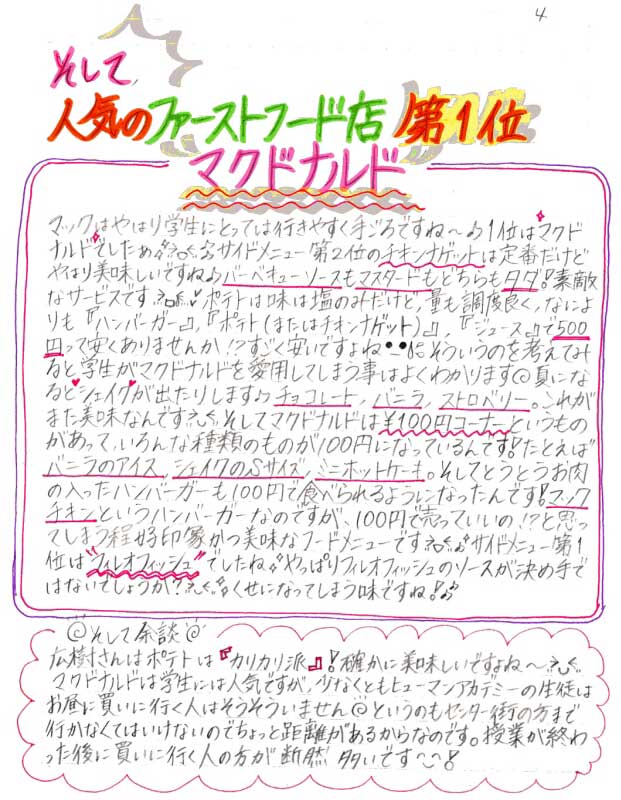 4
そして、
人気のファーストフード店 第1位
マクドナルド
マックはやはり学生にとっては行きやすく手ごろですね〜♪1位はマクド
ナルドでした サイドメニュー第2位のチキンナゲットは定番だけど
やはり美味しいですね♪バーベキューソースもマスタードもどちらもタダ!素敵
なサービスです ポテトは味は塩のみだけど、量も調度良く、なにより
も『ハンバーガー』、『ポテト(またはチキンナゲット)』、『ジュース』で500
円って安くありませんか!?すごく安いですよね そういうのを考えてみ
ると学生がマクドナルドを愛用してしまう事はよくわかります 夏にな
るとシェイクが出たりします♪チョコレート、バニラ、ストロベリー。これが
また美味なんです そしてマクドナルドは¥100円コーナーというもの
があって、いろんな種類のものが100円になっているんです!たとえば
バニラのアイス、シェイクのSサイズ、ミニホットケーキ。そしてとうとうお肉
の入ったハンバーガーも100円で食べられるようになったんです!マック
チキンというハンバーガーなのですが、100円で売っていいの!?と思っ
てしまう程好印象かつ美味なフードメニューです♪サイドメニュー第1
位は"フィレオフィッシュ"でしたね♪やっぱりフィレオフィッシュのソースが決め手で
はないでしょうか?くせになってしまう味ですね!♪
@そして余談@
広樹さんはポテトは『カリカリ派』!確かに美味しいですよね〜
マクドナルドは学生には人気ですが、少なくともヒューマンアカデミーの生徒は
お昼に買いに行く人はそうそういません@というのもセンター街の方まで
行かなくてはいけないのでちょっと距離があるからなのです。授業が終わ
った後に買いに行く人の方が断然多いです〜!